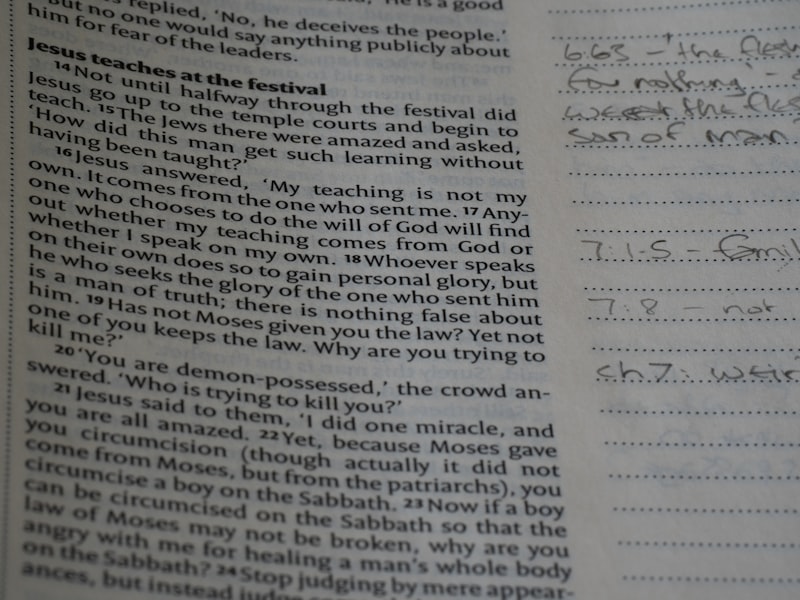 replied, 'No, he deceives the people.'
But no one would say anything publicly about
him for fear of the leaders.
Jesus teaches at the festival
14 Not until halfway through the festival did
Jesus go up to the temple courts and begin to
teach. 15 The Jews there were amazed and asked,
'How did this man get such learning without
having been taught?'
16 Jesus answered, 'My teaching is not my
own. It comes from the one who sent me. 17 Any-
one who chooses to do the will of God will find
out whether my teaching comes from God or
whether I speak on my own. 18 Whoever speaks
on their own does so to gain personal glory, but
he who seeks the glory of the one who sent him
is a man of truth; there is nothing false about
him. 19 Has not Moses given you the law? Yet not
one of you keeps the law. Why are you trying to
kill me?'
20 'You are demon-possessed,' the crowd an-
swered. 'Who is trying to kill you?'
21 Jesus said to them, 'I did one miracle, and
you are all amazed. 22 Yet, because Moses gave
you circumcision (though actually it did not
come from Moses, but from the patriarchs), you
circumcise a boy on the Sabbath. 23 Now if a boy
can be circumcised on the Sabbath so that the
law of Moses may not be broken, why are you
angry with me for healing a man's whole body
on the Sabbath? 24 Stop judging by mere appear-
ances, but instead judge
6:63 - 'the flesh
for nothing' -
the
son of man
7:1-5 - family
7:8 - not
ch 7: